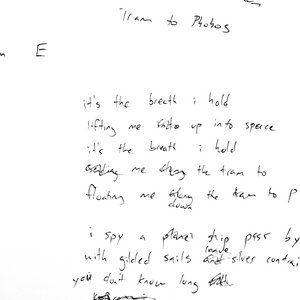 Tram to Phobos
E
it's the breath i hold
lifting me up into space
it's the breath i hold
me along the tram to
floating me along the tram to P
down
i spy a planet ship pass by
large
with gilded sails and silver
you don't know long